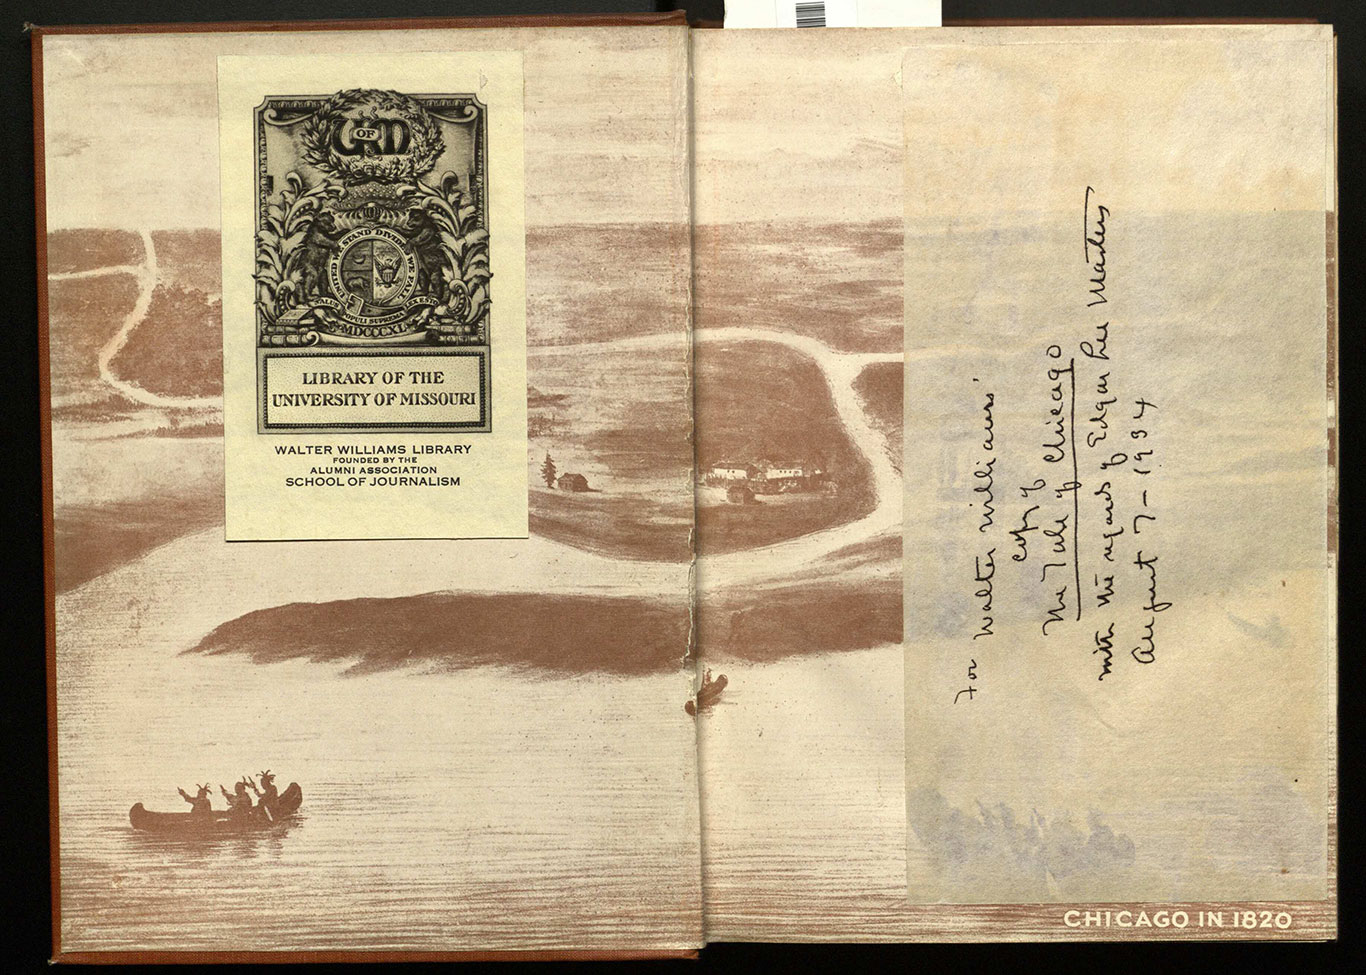 U OF M
UNITED WE STAND DIVIDED WE FALL
SALUS POPULI SUPREMA LEX ESTO
MDCCCXX
LIBRARY OF THE
UNIVERSITY OF MISSOURI
WALTER WILLIAMS LIBRARY
FOUNDED BY THE
ALUMNI ASSOCIATION
SCHOOL OF JOURNALISM
For Walter Williams'
copy of
The Tale of Chicago
with the regards of Edgar Lee Masters
August 7-1934
CHICAGO IN 1820